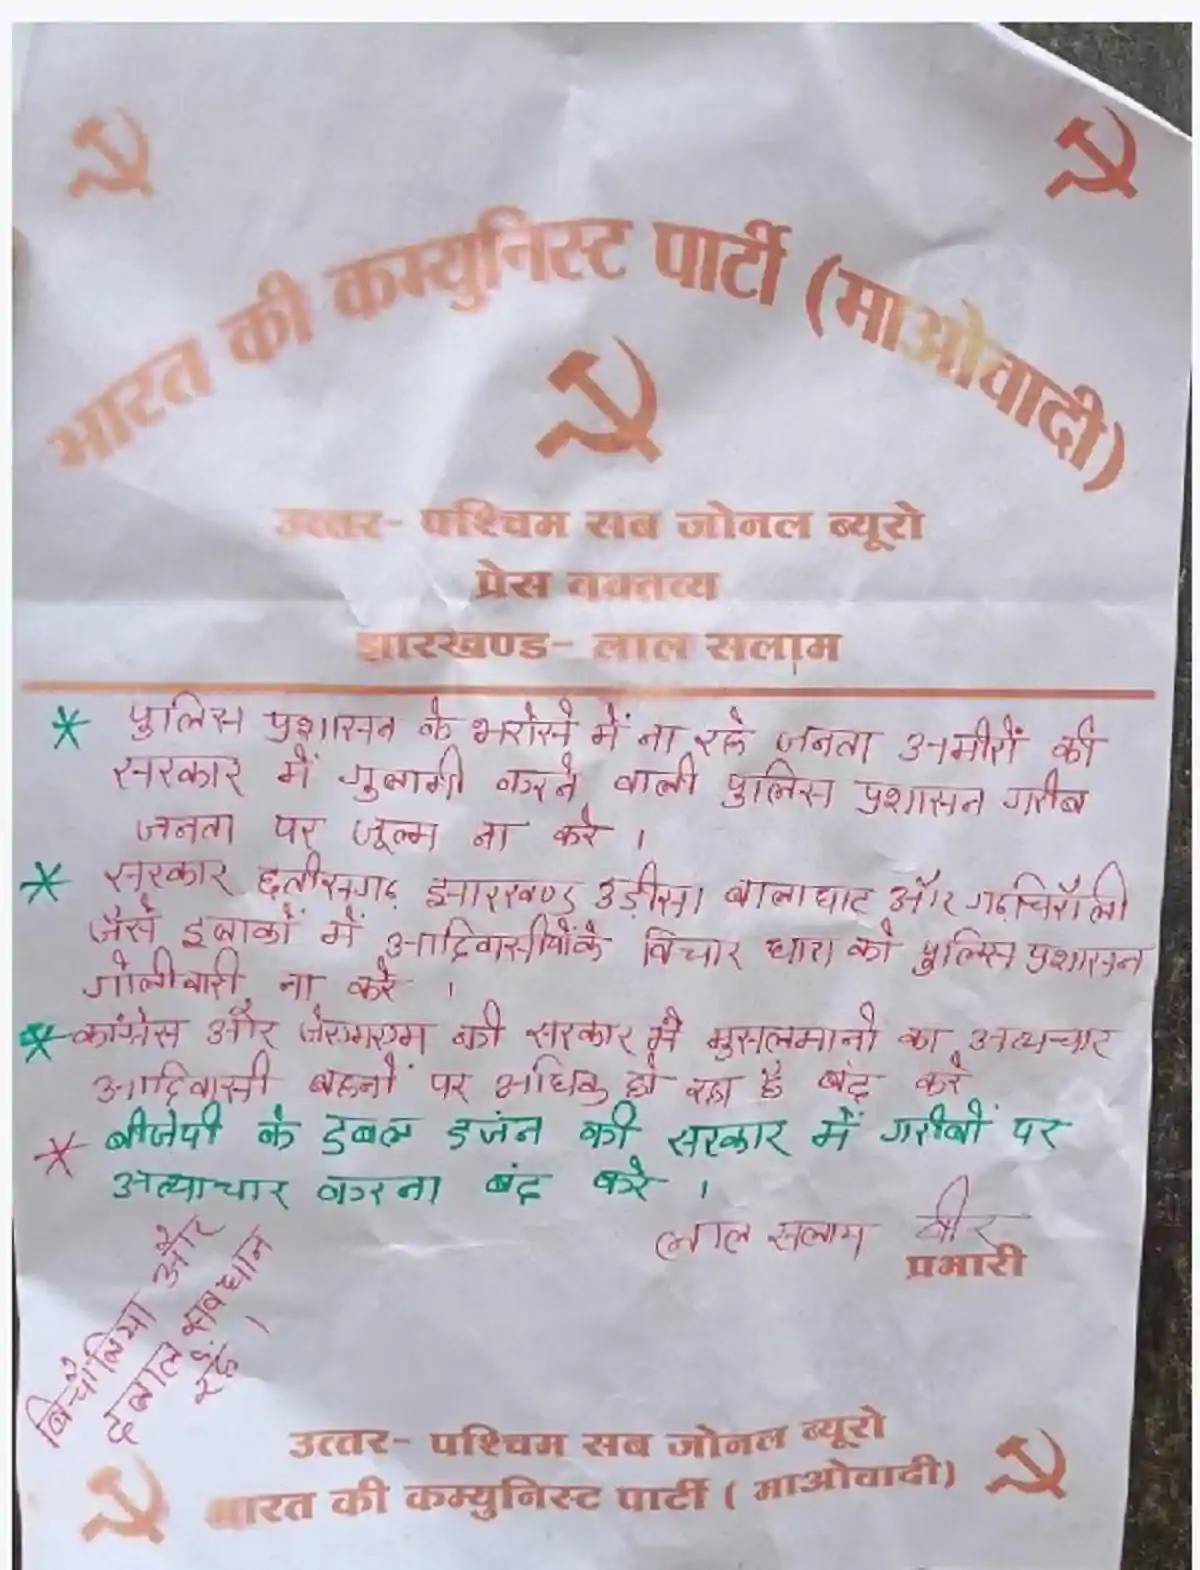 भारत की कम्युनिस्ट पार्टी (माओवादी)
उत्तर- पश्चिम सब जोनल ब्यूरो
प्रेस वक्तव्य
झारखण्ड- लाल सलाम
* पुलिस प्रशासन के भरोसे में ना रहे जनता अमीरों की
सरकार में गुलामी करने वाली पुलिस प्रशासन गरीब
जनता पर जूल्म ना करे ।
* सरकार छत्तीसगढ़ झारखण्ड उड़ीसा बालाघाट और गढ़चिरौली
जैसे इलाकों में आदिवासीयोंके विचार धारा को पुलिस प्रशासन
गोलीबारी ना करे ।
* कांग्रेस और जेएमएम की सरकार में मुसलमानो का अत्यचार
आदिवासी बहनों पर अधिक हो रहा है बंद करे
* बीजेपी के डबल इजंन की सरकार में गरीबों पर
अत्याचार करना बंद करे ।
लाल सलाम वीर
प्रभारी
बिचौलिया और
दलाल सवधान
रहें ।
उत्तर- पश्चिम सब जोनल ब्यूरो
भारत की कम्युनिस्ट पार्टी ( माओवादी)